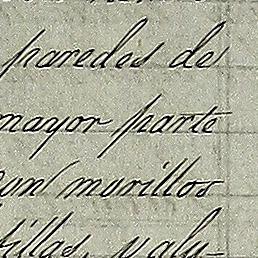 paredes de
mayor parte
con morillos
tillas, y aly-